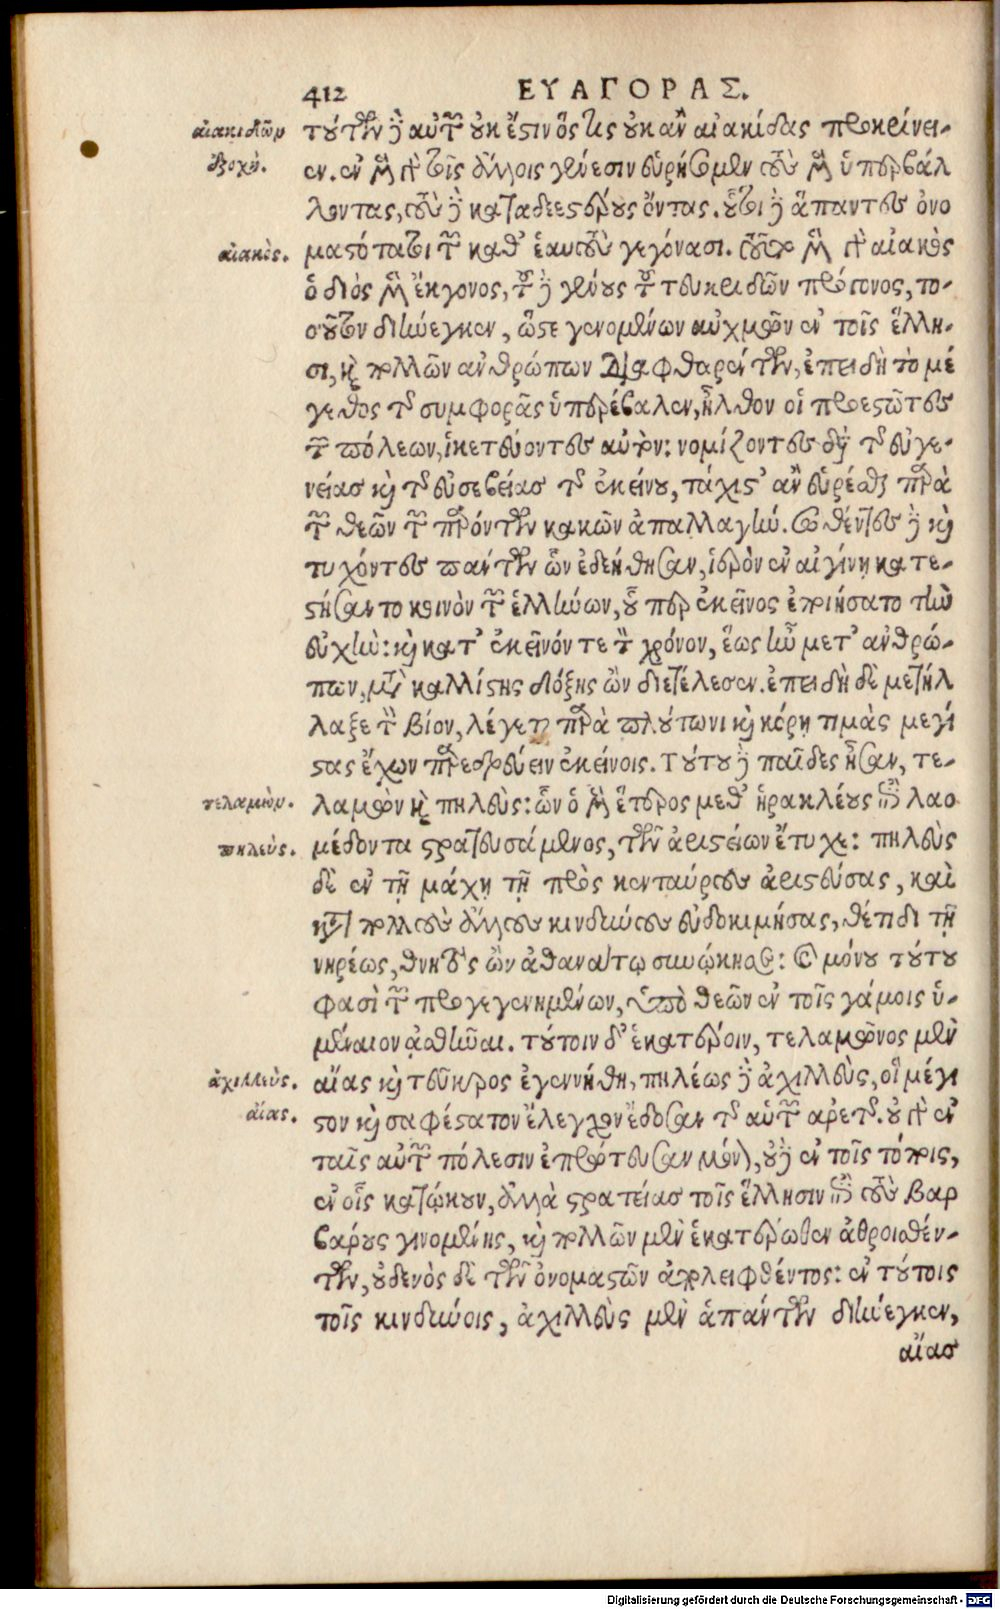 412 ΕΥΑΓΟΡΑΣ.
αἰακιδῶν
ἐξοχή.
τούτων δὲ αὐτῶν οὐκ ἔστιν ὅστις οὐκ ἂν αἰακίδας προκρίνει-
εν. ἐν μὲν γὰρ τοῖς ἄλλοις γένεσιν εὑρήσομεν τοὺς μὲν ὑπερβάλ
λοντας, τοὺς δὲ καταδεεστέρους ὄντας. οὗτοι δὲ ἅπαντες ὀνο
αἰακός.
μαστότατοι τῶν καθ' ἑαυτοὺς γεγόνασι. τοῦτο μὲν γὰρ αἰακὸς
ὁ διὸς μὲν ἔκγονος, τοῦ δὲ γένους τοῦ τευκριδῶν πρόγονος, το-
σοῦτον διήνεγκεν, ὥστε γενομένων αὐχμῶν ἐν τοῖς ἕλλη-
σι, καὶ πολλῶν ἀνθρώπων διαφθαρέντων, ἐπειδὴ τὸ μέ
γεθος τῆς συμφορᾶς ὑπερέβαλεν, ἦλθον οἱ προεστῶτες
τῶν πόλεων, ἱκετεύοντες αὐτόν: νομίζοντες διὰ τῆς εὐγε-
νείας καὶ τῆς εὐσεβείας τῆς ἐκείνου, τάχιστ' ἂν εὑρέσθαι παρὰ
τῶν θεῶν τῶν παρόντων κακῶν ἀπαλλαγήν. σωθέντες δὲ καὶ
τυχόντες πάντων ὧν ἐδεήθησαν, ἱερὸν ἐν αἰγίνῃ κατε-
στήσαντο κοινὸν τῶν ἑλλήνων, οὗ περ ἐκεῖνος ἐποιήσατο τὴν
εὐχήν: καὶ κατ' ἐκεῖνόν τε τὸν χρόνον, ἕως ἦν μετ' ἀνθρώ-
πων, μετὰ καλλίστης δόξης ὢν διετέλεσεν. ἐπειδὴ δὲ μετήλ
λαξε τὸν βίον, λέγεται παρὰ πλούτωνι καὶ κόρῃ τιμὰς μεγί
στας ἔχων παρεδρεύειν ἐκείνοις. Τούτου δὲ παῖδες ἦσαν, τε-
τελαμών.
λαμὼν καὶ πηλεύς: ὧν ὁ μὲν ἕτερος μεθ' ἡρακλέους ἐπὶ λαο
πηλεύς.
μέδοντα στρατευσάμενος, τῶν ἀριστείων ἔτυχε: πηλεὺς
δὲ ἐν τῇ μάχῃ τῇ πρὸς κενταύρους ἀριστεύσας, καὶ
κατὰ πολλοὺς ἄλλους κινδύνους εὐδοκιμήσας, θέτιδι τῇ
νηρέως, θνητὸς ὢν ἀθανάτῳ συνῴκησε: καὶ μόνου τούτου
φασὶ τῶν προγεγενημένων, ὑπὸ θεῶν ἐν τοῖς γάμοις ὑ-
μέναιον ᾀσθῆναι. τούτοιν δ' ἑκατέροιν, τελαμῶνος μὲν
ἀχιλλεύς.
αἴας καὶ τεῦκρος ἐγεννήθη, πηλέως δὲ ἀχιλλεύς, οἳ μέγι
αἴας.
στον καὶ σαφέστατον ἔλεγχον ἔδοσαν τῆς αὑτῶν ἀρετῆς. οὐ γὰρ ἐν
ταῖς αὑτῶν πόλεσιν ἐπρώτευσαν μόνον, οὐδὲ ἐν τοῖς τόποις,
ἐν οἷς κατῴκουν, ἀλλὰ στρατείας τοῖς ἕλλησιν ἐπὶ τοὺς βαρ
βάρους γινομένης, καὶ πολλῶν μὲν ἑκατέρωθεν ἀθροισθέν-
των, οὐδενὸς δὲ τῶν ὀνομαστῶν ἀπολειφθέντος: ἐν τούτοις
τοῖς κινδύνοις, ἀχιλλεὺς μὲν ἁπάντων διήνεγκεν,
αἴας
Digitalisierung gefördert durch die Deutsche Forschungsgemeinschaft - DFG